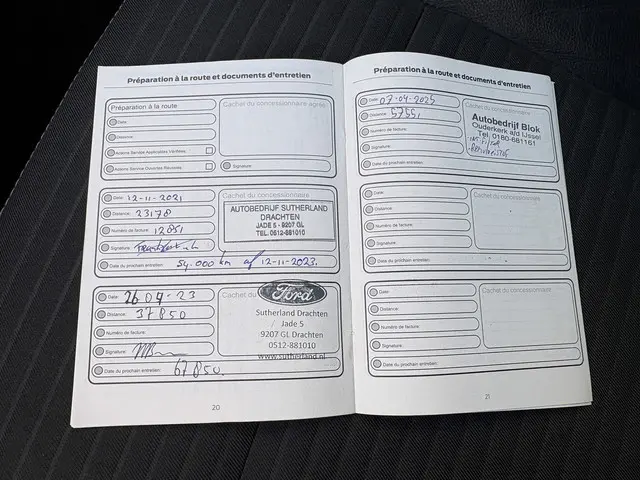 Préparation à la route et documents d'entretien
Préparation à la route
Cachet du concessionnaire agréé
Date:
Distance:
Signature:
Date: 12-11-2021
Cachet du concessionnaire
Distance: 23178
AUTOBEDRIJF SUTHERLAND
DRACHTEN
JADE 5 - 9207 GL
TEL. 0512-881010
Numéro de facture: 12851
Signature:
Date du prochain entretien: 54.000 km of 12-11-2023.
Date: 26 04-23
Cachet du
Ford
Distance: 37850
Sutherland Drachten
Jade 5
9207 GL Drachten
0512-881010
www.sutherland.nl
Numéro de facture:
Signature:
Date du prochain entretien: 67850.
20
Préparation à la route et documents d'entretien
Date: 07-04-2025
Cachet du concessionnaire
Distance: 57551
Autobedrijf Blok
Ouderkerk a/d IJssel
Tel. 0180-681161
Numéro de facture:
Signature:
Date du prochain entretien:
Date:
Cachet du concessionnaire
Distance:
Numéro de facture:
Signature:
Date du prochain entretien:
Date:
Cachet du concessionnaire
Distance:
Numéro de facture:
Signature:
Date du prochain entretien:
21